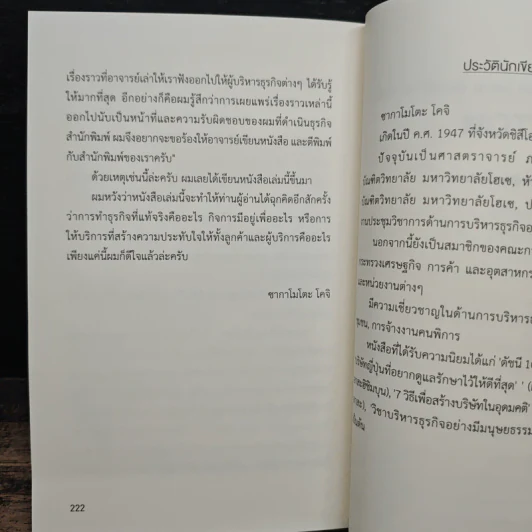 เรื่องราวที่อาจารย์เล่าให้เราฟังออกไปให้ผู้บริหารธุรกิจต่างๆ ได้รับรู้
ให้มากที่สุด อีกอย่างก็คือผมรู้สึกว่าการเผยแพร่เรื่องราวเหล่านี้
ออกไปนับเป็นหน้าที่และความรับผิดชอบของผมที่ดำเนินธุรกิจ
สำนักพิมพ์ ผมจึงอยากจะขอร้องให้อาจารย์เขียนหนังสือ และตีพิมพ์
กับสำนักพิมพ์ของเราครับ"
ด้วยเหตุเช่นนี้ล่ะครับ ผมเลยได้เขียนหนังสือเล่มนี้ขึ้นมา
ผมหวังว่าหนังสือเล่มนี้จะทำให้ท่านผู้อ่านได้ฉุกคิดอีกสักครั้ง
ว่าการทำธุรกิจที่แท้จริงคืออะไร กิจการมีอยู่เพื่ออะไร หรือการ
ให้บริการที่สร้างความประทับใจให้ทั้งลูกค้าและผู้บริการคืออะไร
เพียงแค่นี้ผมก็ดีใจแล้วล่ะครับ
ซากาโมโตะ โคจิ
222
ประวัตินักเขี
ซากาโมโตะ โคจิ
เกิดในปี ค.ศ. 1947 ที่จังหวัดชิสึโอ
ปัจจุบันเป็นศาสตราจารย์
บัณฑิตวิทยาลัย มหาวิทยาลัยโฮเซ,
บัณฑิตวิทยาลัย มหาวิทยาลัยโฮเซ,
งานประชุมวิชาการด้านการบริหารธุรกิจ
นอกจากนี้ยังเป็นสมาชิกของคณะก
กระทรวงเศรษฐกิจ การค้า และอุตสาหกร
และหน่วยงานต่างๆ
มีความเชี่ยวชาญในด้านการบริหาร
ชุมชน, การจ้างงานคนพิการ
หนังสือที่ได้รับความนิยมได้แก่ 'ดัชนี
บริษัทญี่ปุ่นที่อยากดูแลรักษาไว้ให้ดีที่สุด'
'7 วิธีเพื่อสร้างบริษัทในอุดมคติ'
'วิชาบริหารธุรกิจอย่างมีมนุษยธรรม
เป็นต้น